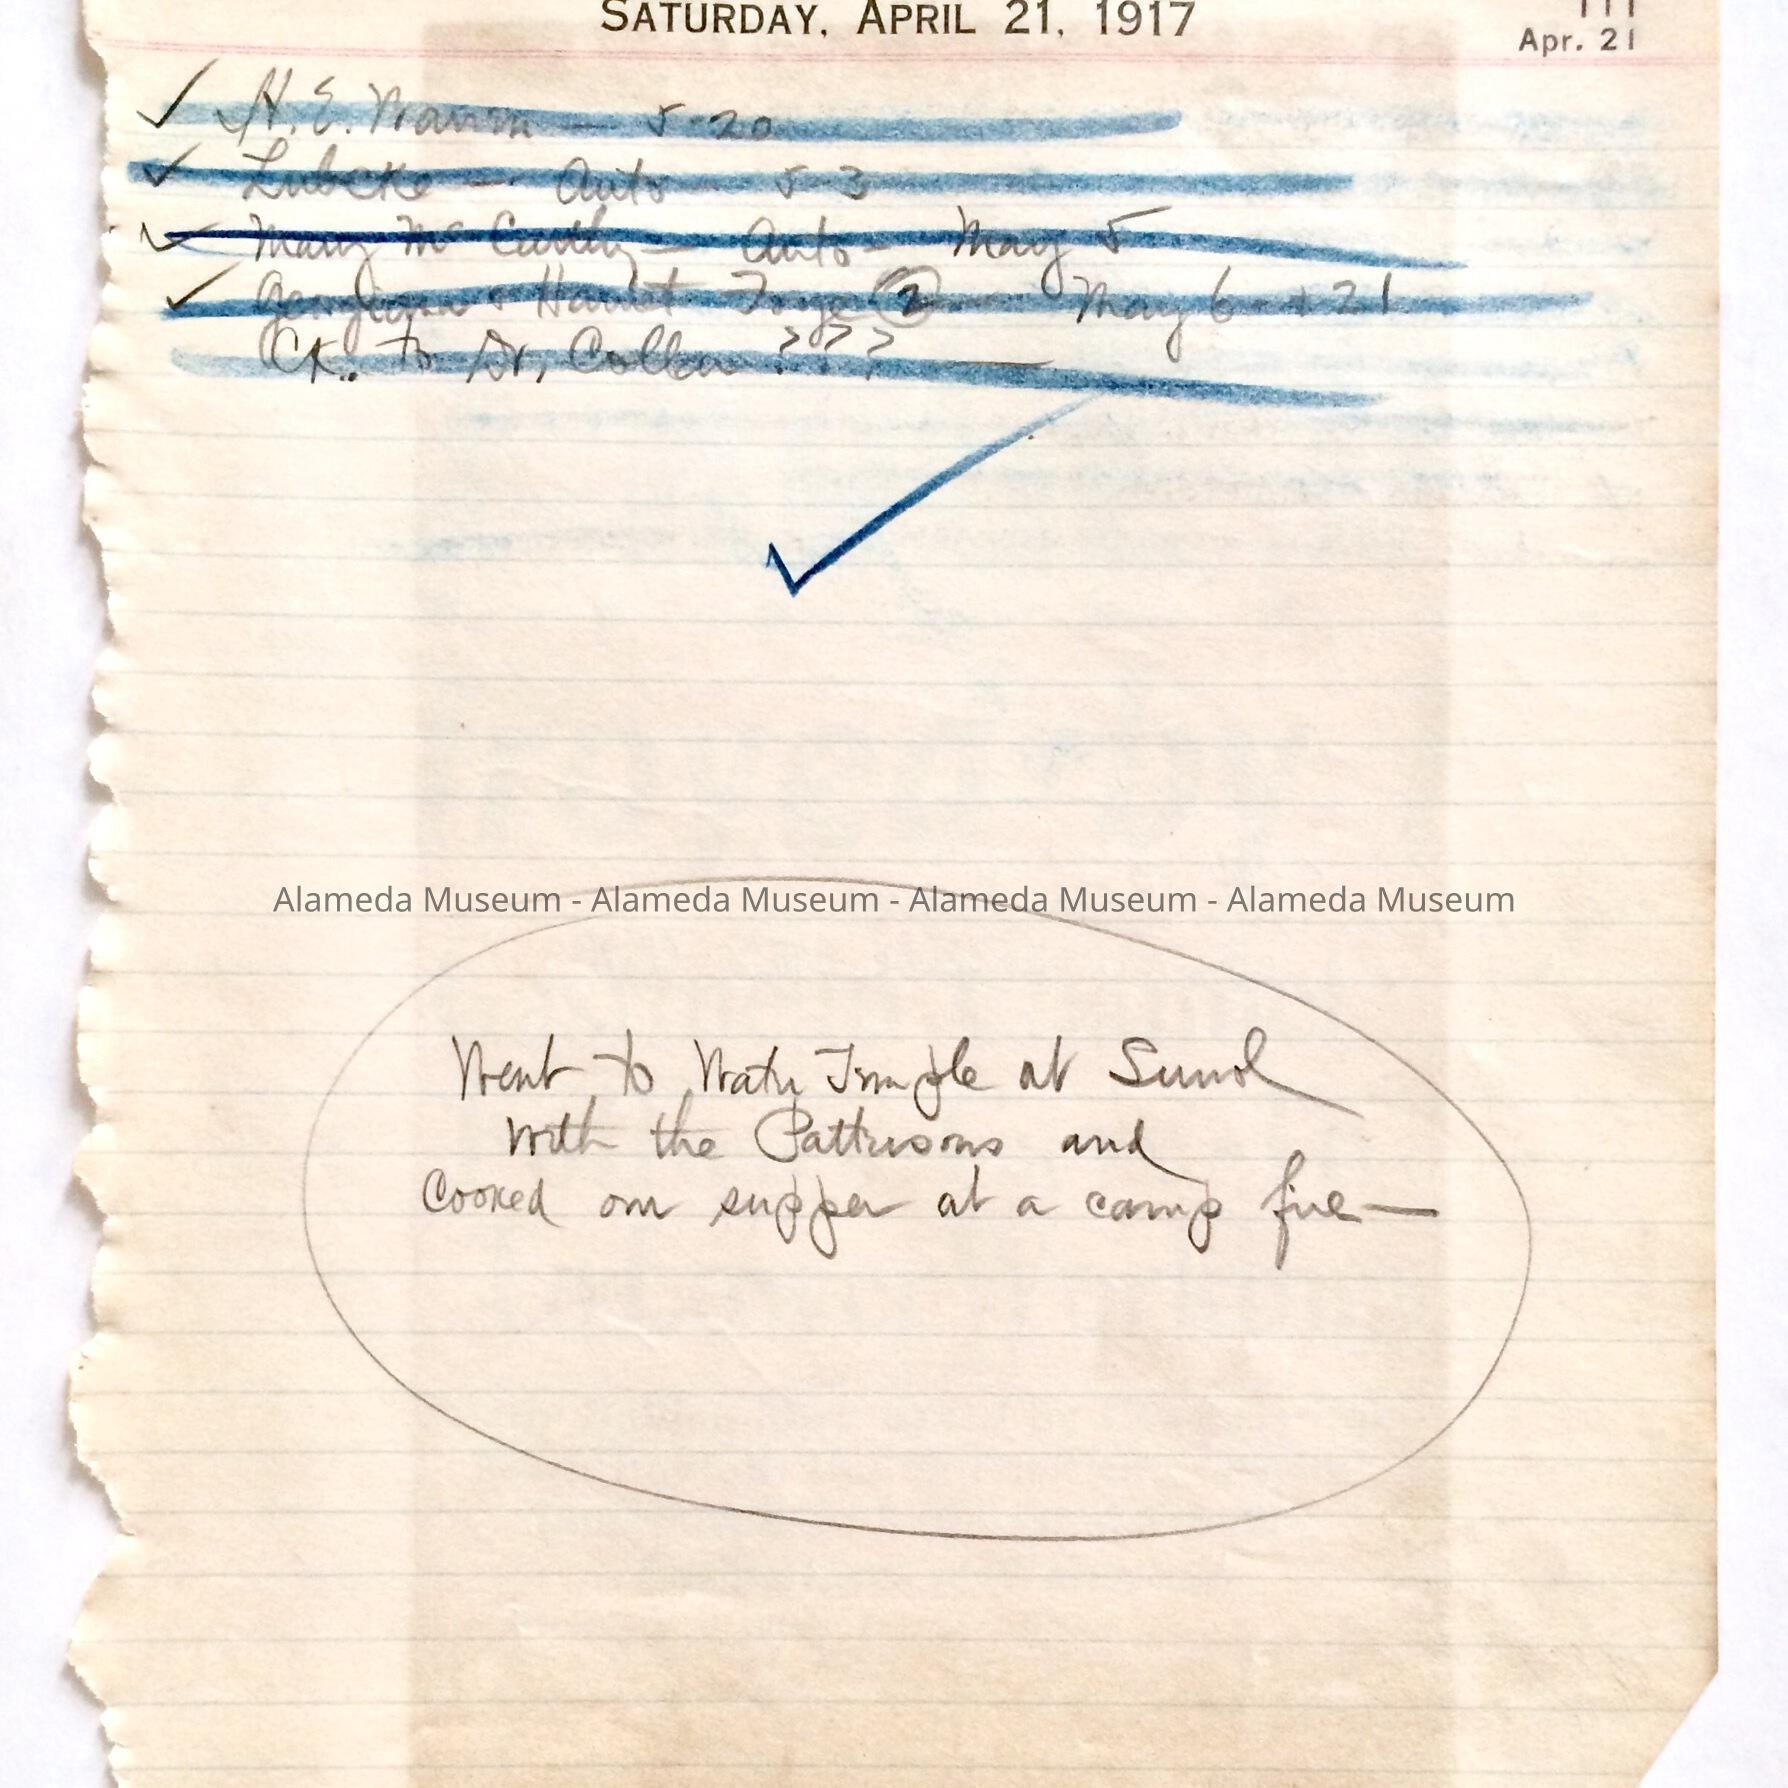 SATURDAY, APRIL 21, 1917
111
Apr. 21
✓ H. E. Warren — 5-20
✓ Lubcke — Auto — 5-3
✓ Mary McCarthy — Auto — May 5
✓ Georgiana & Harriet 2 May 6 + 21
Ck. to Dr, ???
Alameda Museum - Alameda Museum - Alameda Museum - Alameda Museum
Went to Water Temple at Sunol
with the Pattersons and
cooked our supper at a camp fire —